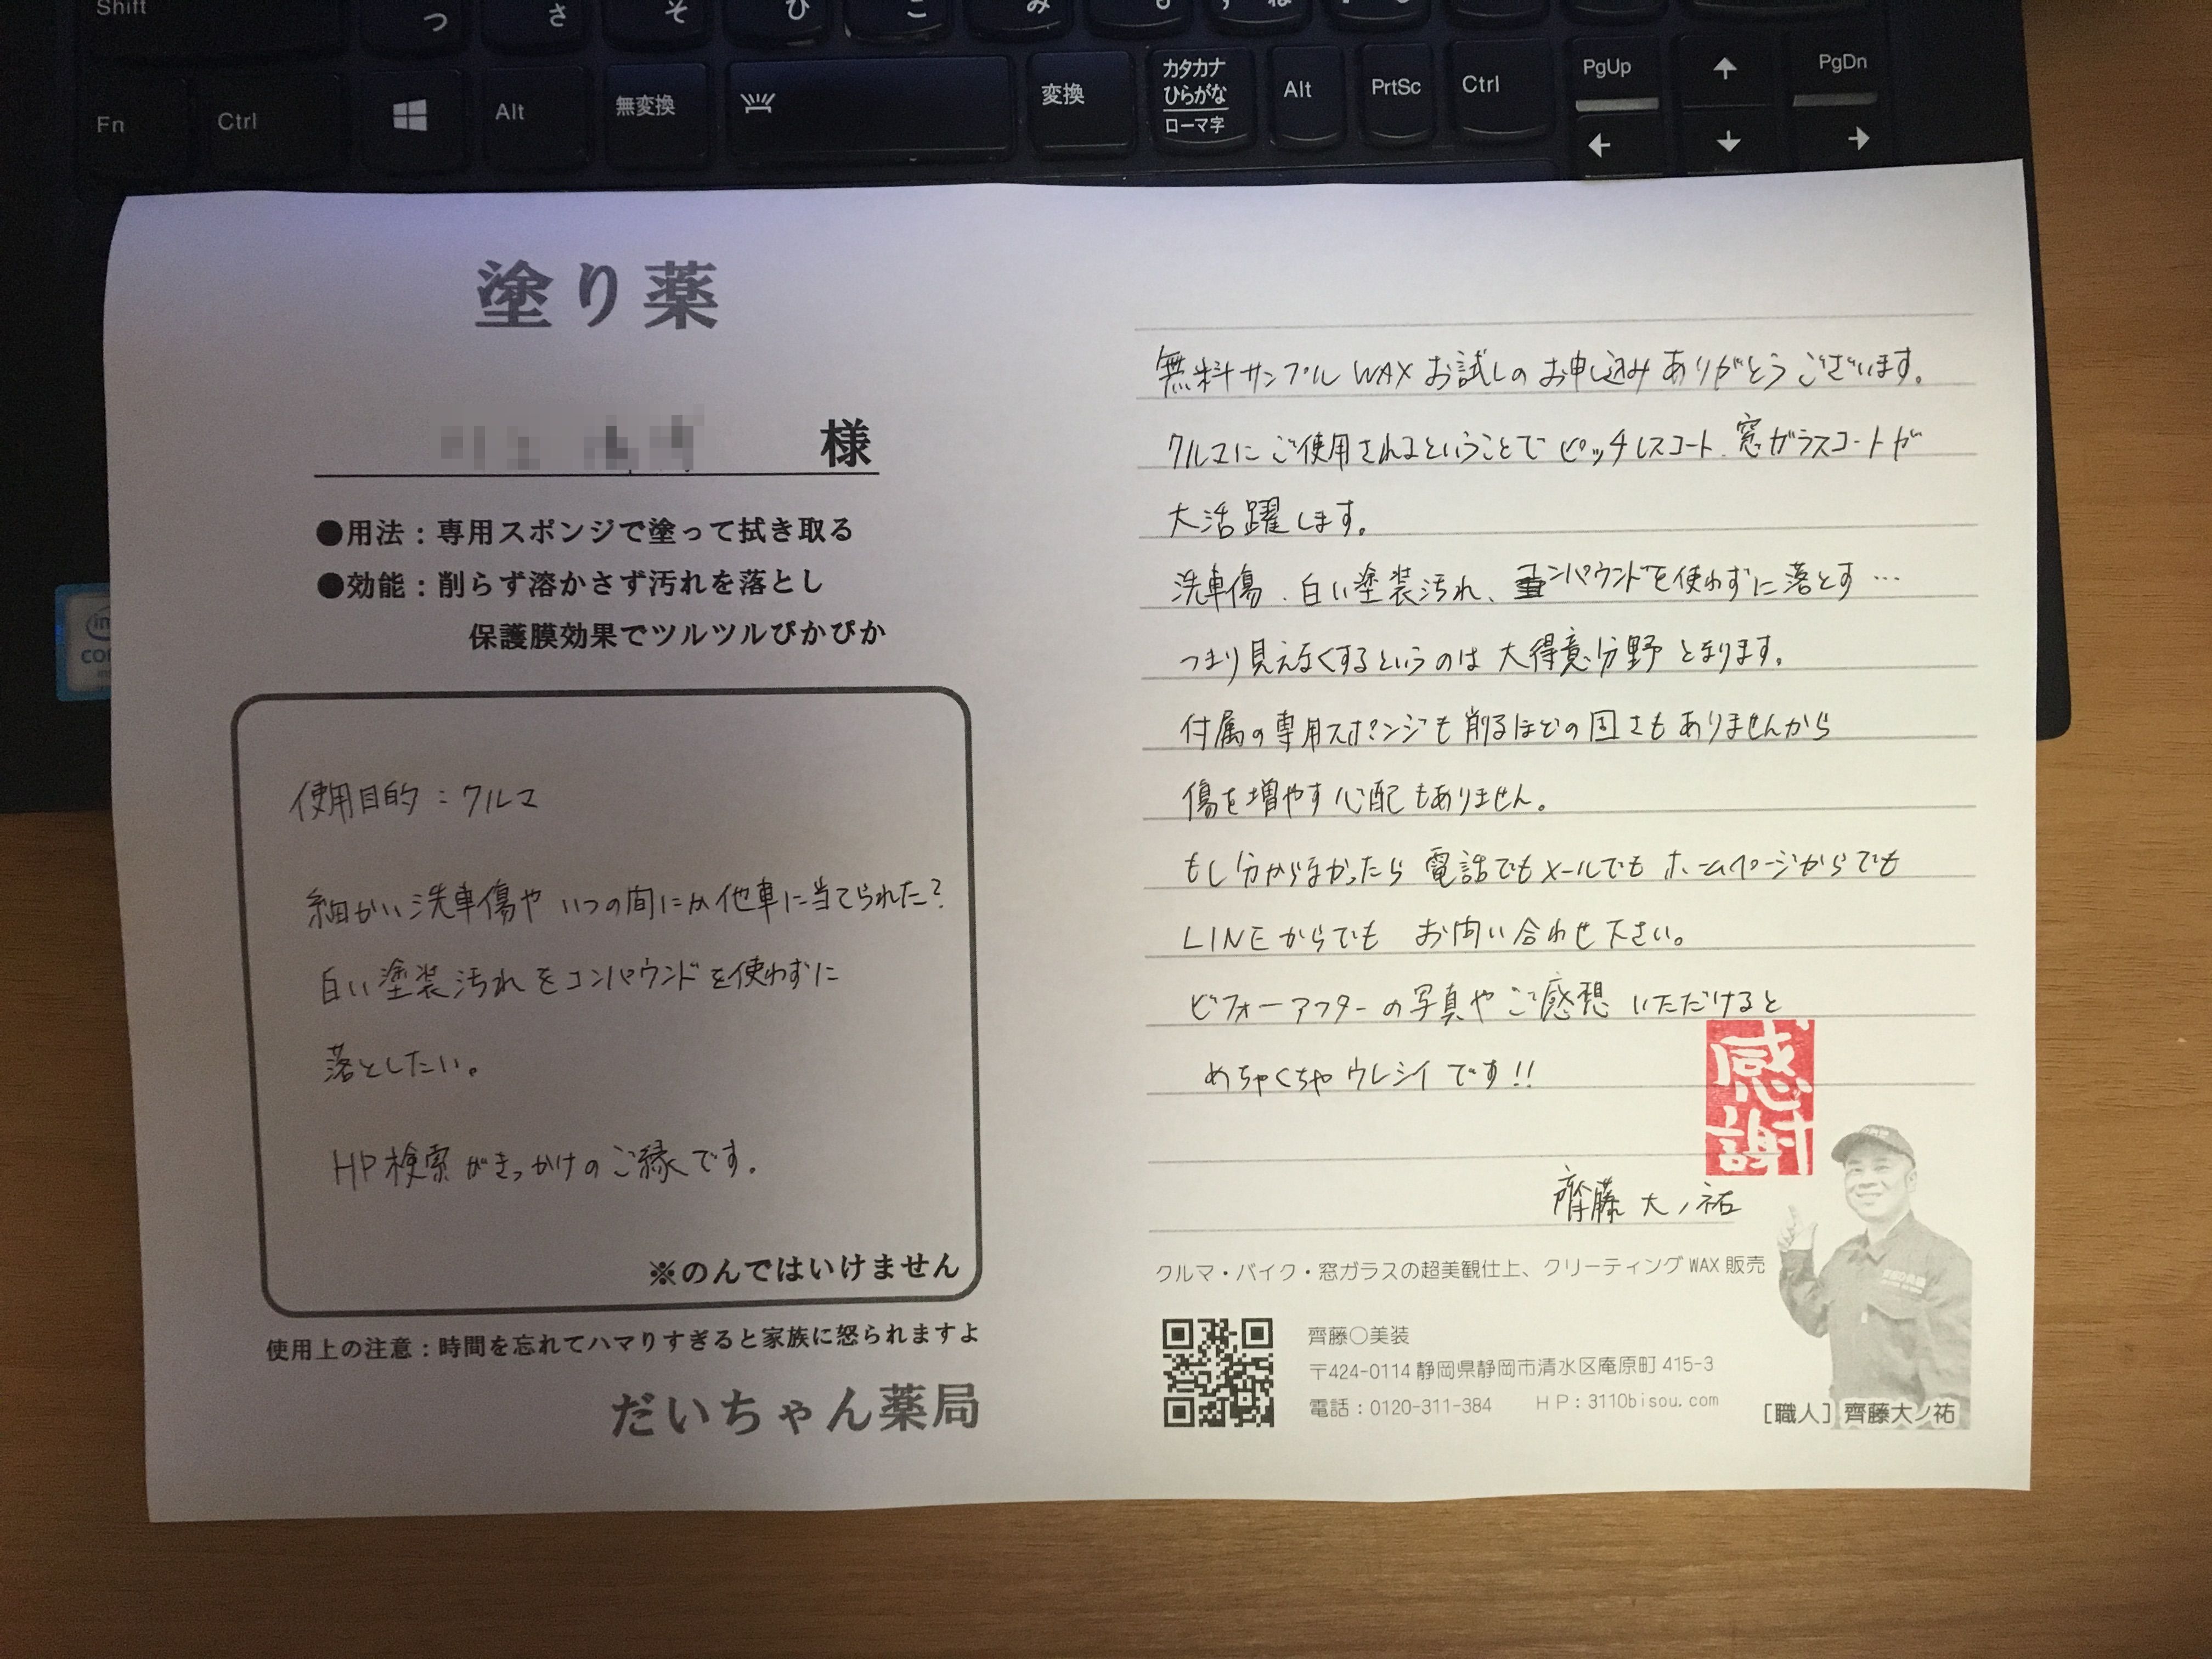 Shift
つ
さ
そ
ひ
こ
み
も
ね
Fn
Ctrl
Alt
無変換
変換
カタカナ
ひらがな
ローマ字
Alt
PrtSc
Ctrl
PgUp
PgDn
塗り薬
様
●用法：専用スポンジで塗って拭き取る
●効能：削らず溶かさず汚れを落とし
保護膜効果でツルツルぴかぴか
使用目的：クルマ
細かい洗車傷や いつの間にか他車に当てられた？
白い塗装汚れをコンパウンドを使わずに
落としたい。
HP検索がきっかけのご縁です。
※のんではいけません
使用上の注意：時間を忘れてハマりすぎると家族に怒られますよ
だいちゃん薬局
無料サンプルWAXお試しのお申し込みありがとうございます。
クルマにご使用されるということでピッチレスコート、窓ガラスコートが
大活躍します。
洗車傷、白い塗装汚れ、コンパウンドを使わずに落とす…
つまり見えなくするというのは大得意分野となります。
付属の専用スポンジも削るほどの固さもありませんから
傷を増やす心配もありません。
もし分からなかったら電話でもメールでもホームページからでも
LINEからでも お問い合わせ下さい。
ビフォーアフターの写真やご感想いただけると
めちゃくちゃウレシイです!!
感謝
齊藤大ノ祐
クルマ・バイク・窓ガラスの超美観仕上、クリーティングWAX販売
齊藤○美装
〒424-0114 静岡県静岡市清水区庵原町415-3
電話：0120-311-384 HP：3110bisou.com
［職人］齊藤大ノ祐